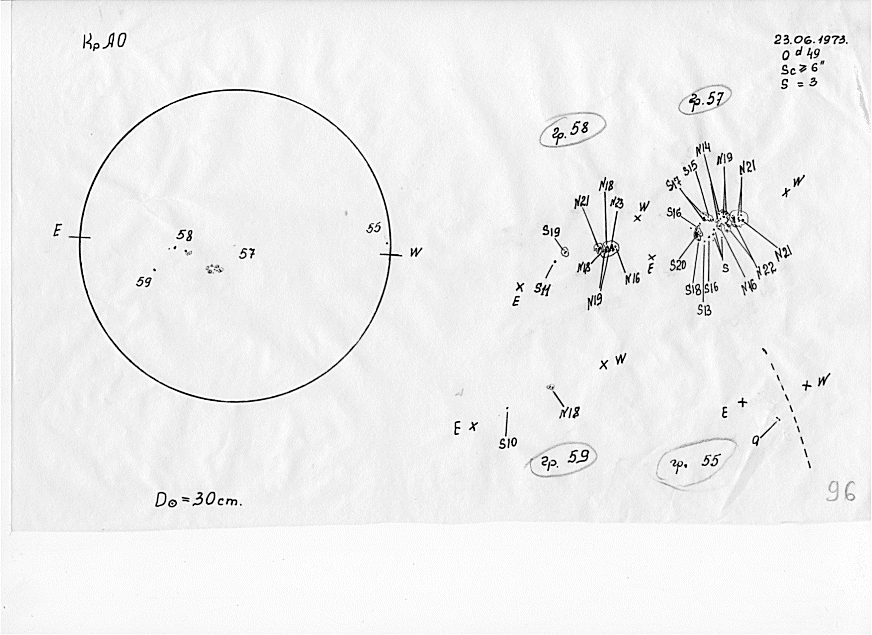 КрАО
23.06.1973.
0 d 49
Sc ≥ 6"
S = 3
гр. 58
гр. 57
E
W
58
57
55
59
N18
N21
N23
W
S19
S11
E
N18
N19
N16
N14
S15
N19
N21
S17
W
S16
E
S20
S18
S16
S13
S
N16
N22
N21
W
N18
E
S10
гр. 59
W
E
q
гр. 55
D⊙ = 30cm.
96